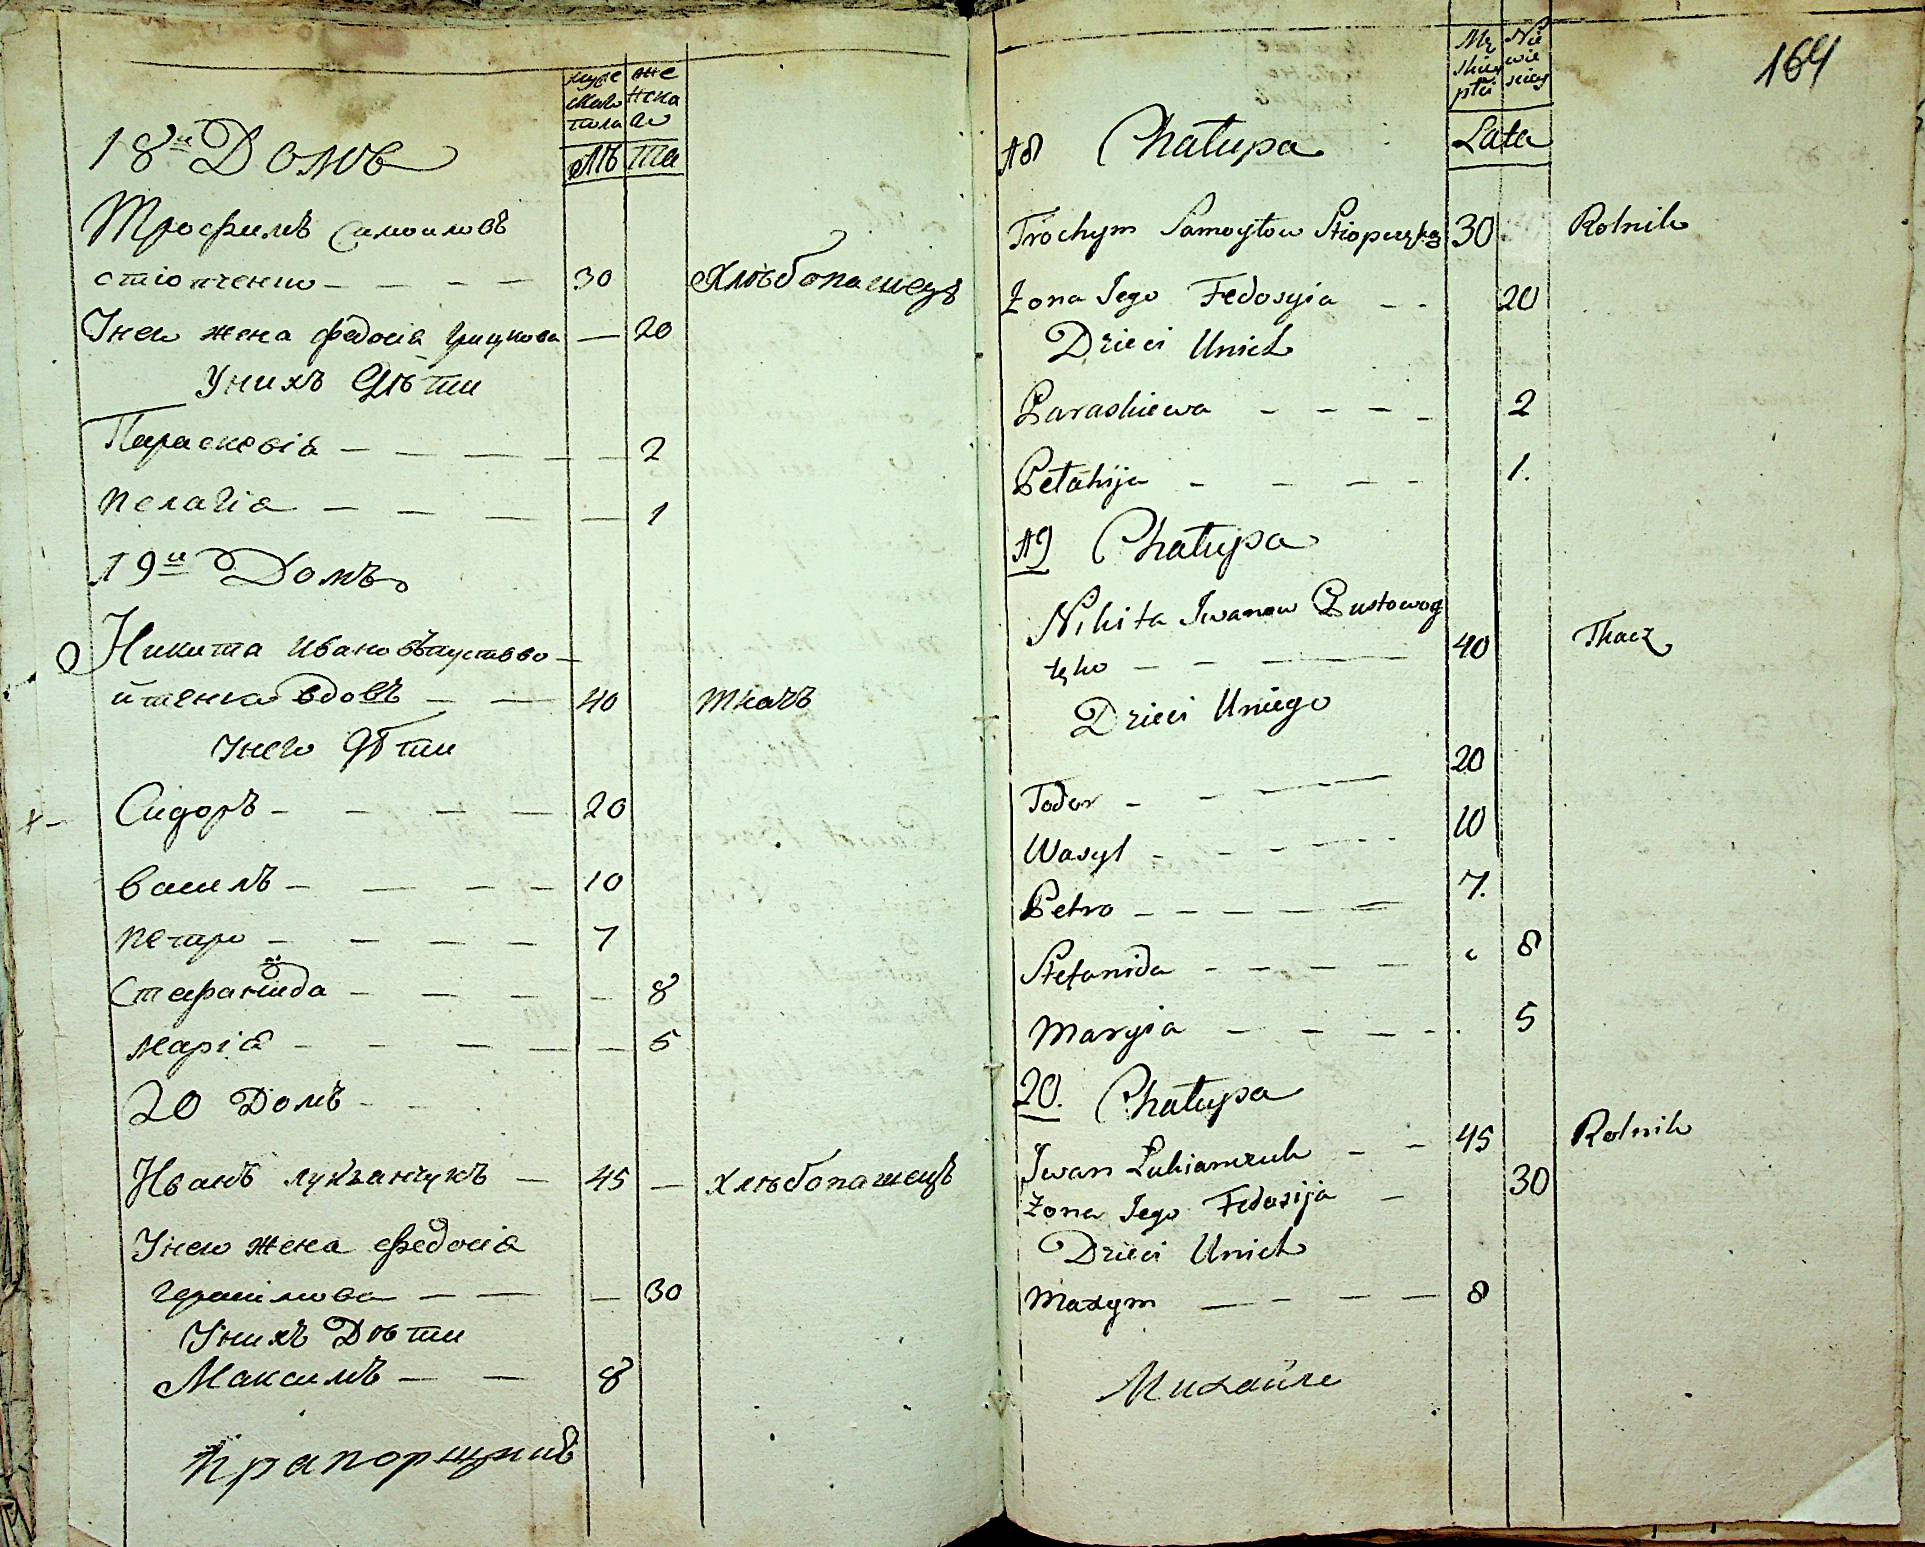 муже же
скаго нска
пола го
лѣ та
18й Домъ
Трофимъ Самоиловъ
стіопченко — — — — 30 Хлѣбопашецъ
Унего жена федосіа Грицкова — 20
Унихъ Дѣти
Параскевіа — — — — — 2
Пелагіа — — — — — 1
19й Домъ
Никита Ивановъ пустово
йтенко вдовъ — — 40 ткачъ
Унего Дѣти
Сидоръ — — — — 20
Василъ — — — — 10
Петро — — — — — 7
Стефанида — — — — 8
Маріа — — — — — 5
20 Домъ
Иванъ лукъанчукъ — 45 — Хлѣбопашецъ
Унего жена федосіа
Герасімова — — — 30
Унихъ Дѣти
Максимъ — — 8
Прапорщикъ
164
Mę Nie
skiey wie
płci skiey
Lata
18 Chałupa
Trochym Samoyłow Stiopczęko 30 Rolnik
Żona Jego Fedosyia — — 20
Dzieci Unich
Paraskiewa — — — — 2
Pełahija — — — — 1.
19 Chałupa
Nikita Iwanow Pustowoy
tęko — — — 40 Tkacz
Dzieci Uniego
Todor — — — — 20
Wasyl — — — — 10
Petro — — — — — 7.
Stefanida — — — — 8
Maryia — — — — 5
20. Chałupa
Iwan Łukianczuk — — 45 Rolnik
Żona Jego Fedosija — 30
Dzieci Unich
Maxym — — — — 8
Михайле